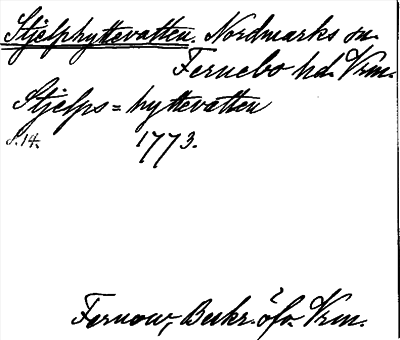 Stjelphyttevatten. Nordmarks sn.
Fernebo hd. Vrm.
Stjelps=hyttevatten
S.14. 1773.
Fernow, Beskr. öfv. Vrm.